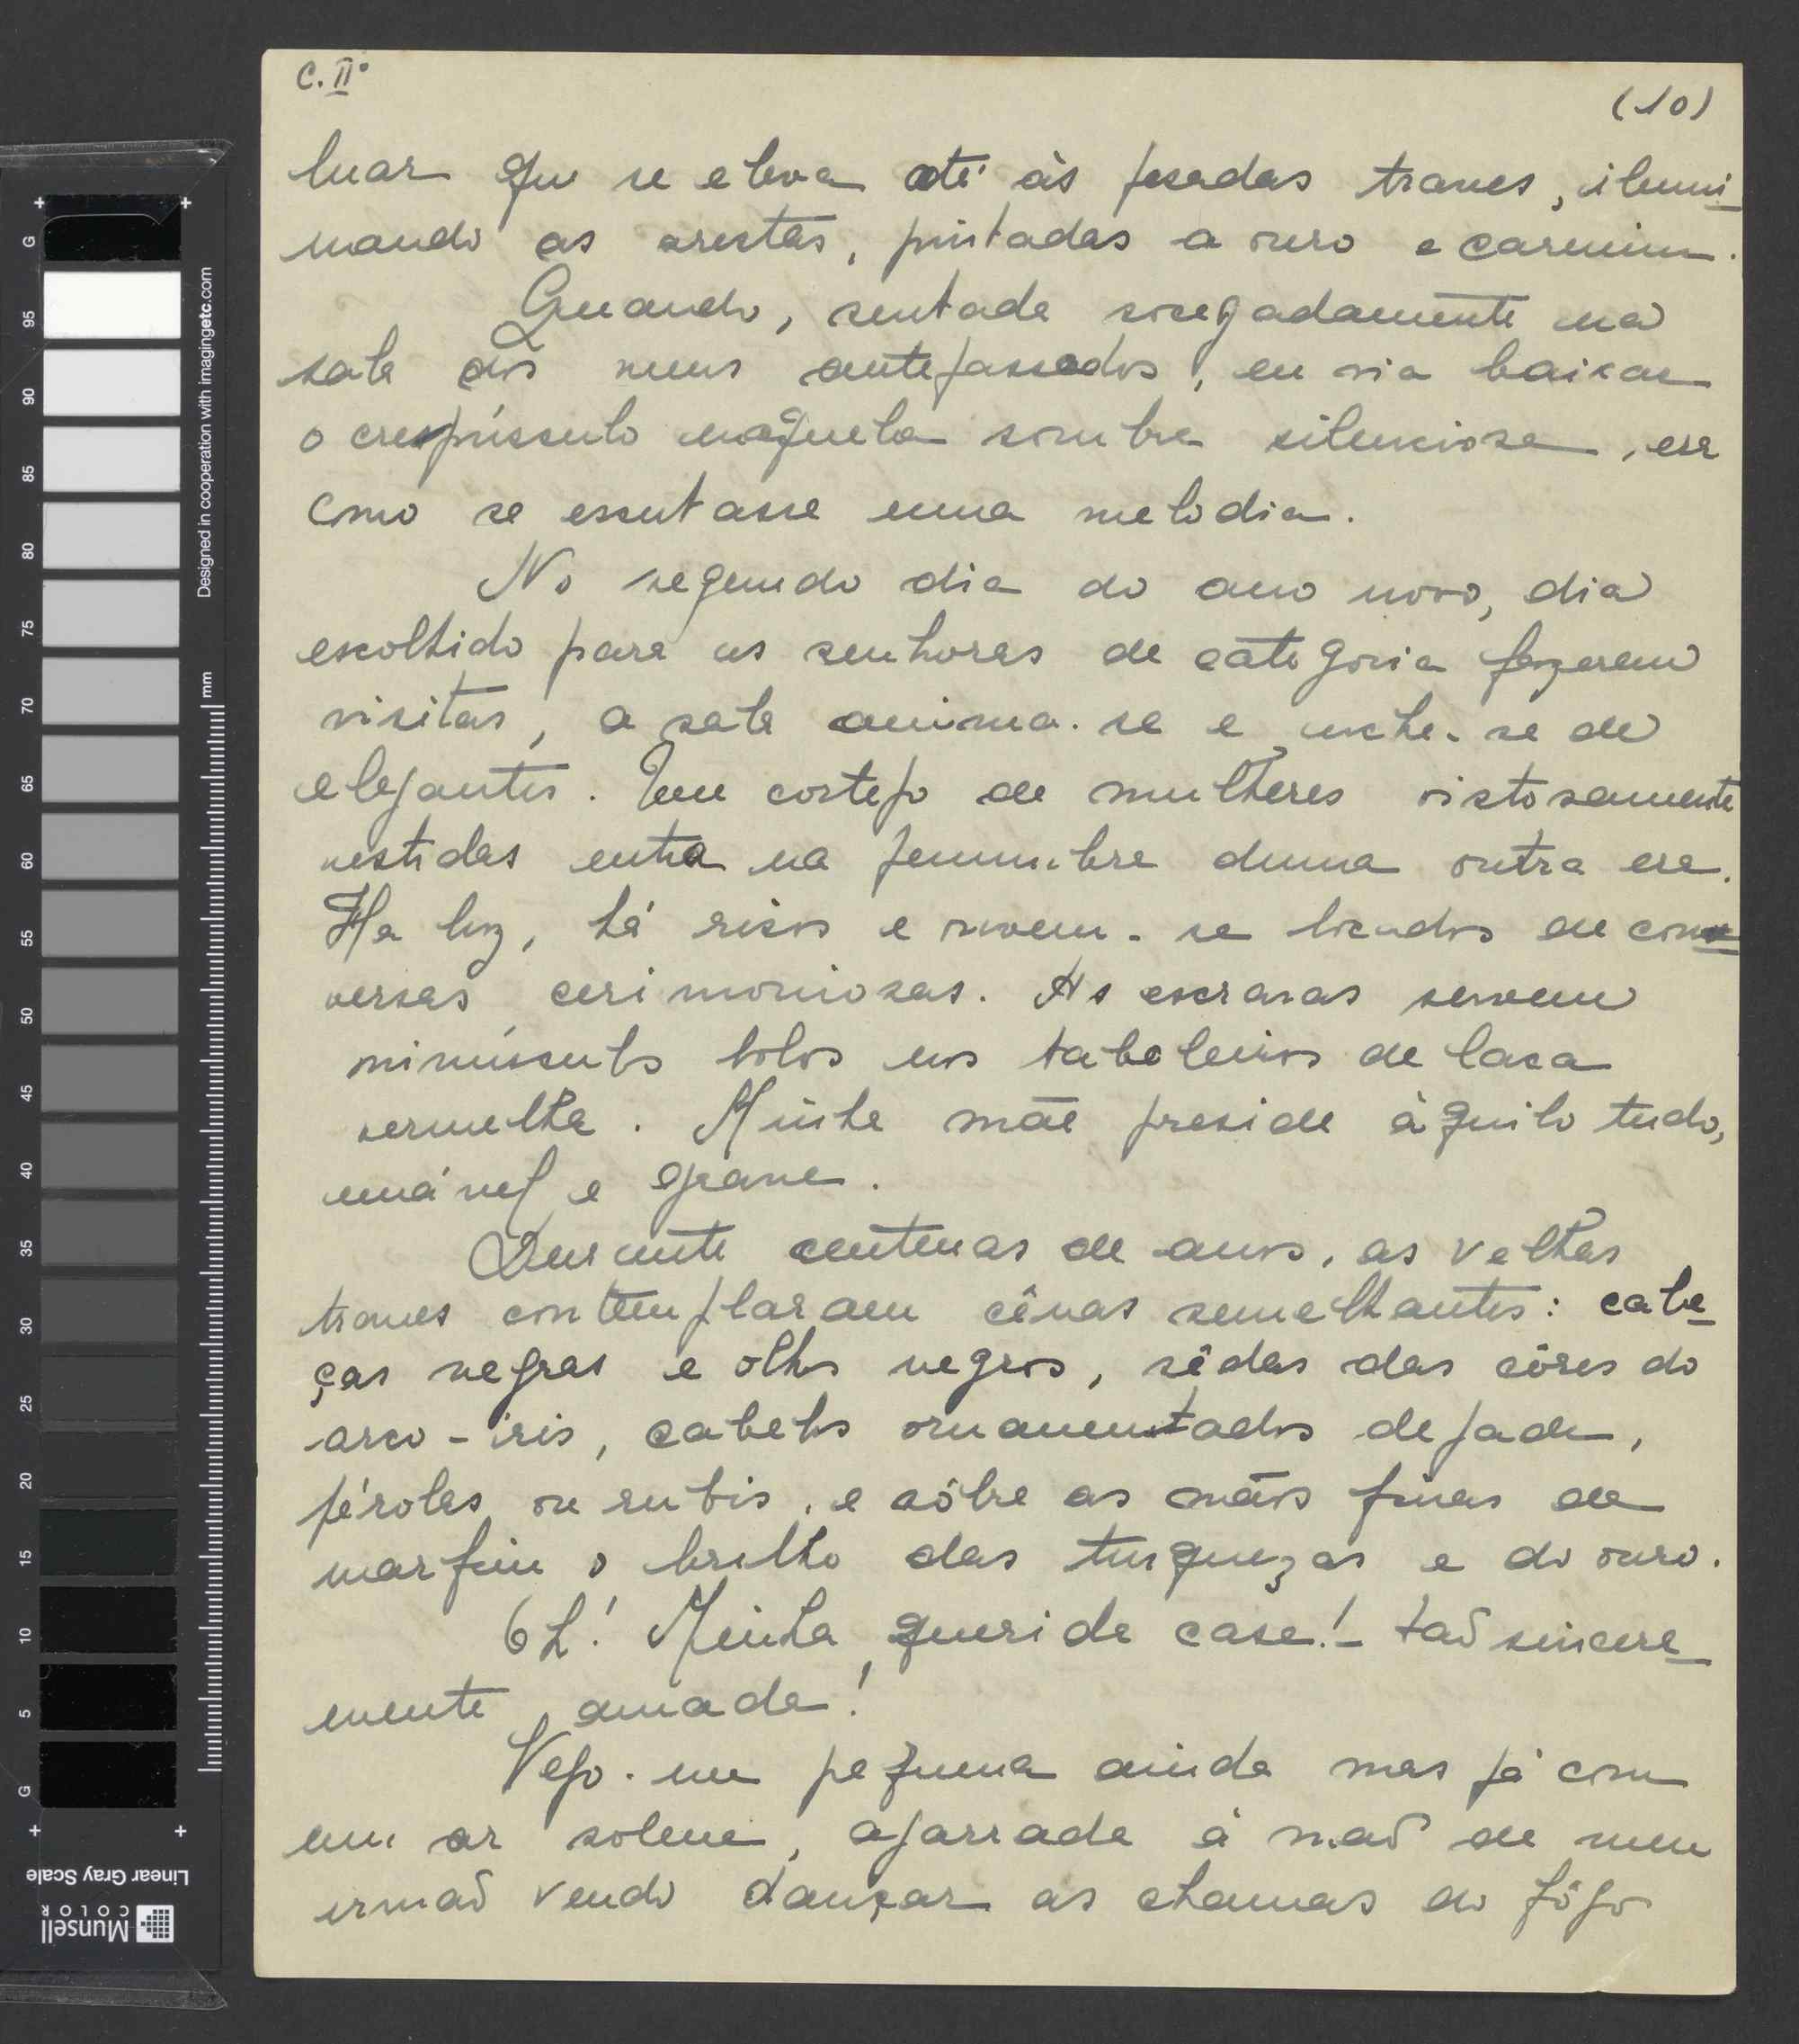 C. IIº
(10)
luar que se eleva até às pesadas traves, ilumi-
nando as arestas, pintadas a ouro e carmim.
Quando, sentada socegadamente na
sala dos meus antepassados, eu via baixar
o crespúsculo naquela sombra silenciosa, era
como se escutasse uma melodia.
No segundo dia do ano novo, dia
escolhido para as senhoras de categoria fazerem
visitas, a sala anima-se e enche-se de
elegantes. Um cortejo de mulheres vistosamente
vestidas entra na penumbra duma outra era.
Ha luz, há risos e ouvem-se bocados de con-
versas cerimoniosas. As escravas servem
minúsculos bolos em taboleiros de laca
vermelha. Minha mãe preside àquilo tudo,
amável e grave.
Durante centenas de anos, as velhas
traves contemplaram cênas semelhantes: cabe-
ças negras e olhos negros, sêdas das côres do
arco-iris, cabelos ornamentados de jade,
pérolas ou rubis, e sôbre as mãos finas de
marfim o brilho das turquezas e do ouro.
Oh! Minha querida casa!- tão sincera-
mente amada!
Vejo-me pequena ainda mas já com
um ar solene, agarrada à mão de meu
irmão vendo dançar as chamas do fôgo
G
95
90
85
80
75
70
65
60
55
50
45
40
35
30
25
20
15
10
5
G
mm
Designed in cooperation with imagingetc.com
Linear Gray Scale
Munsell
COLOR